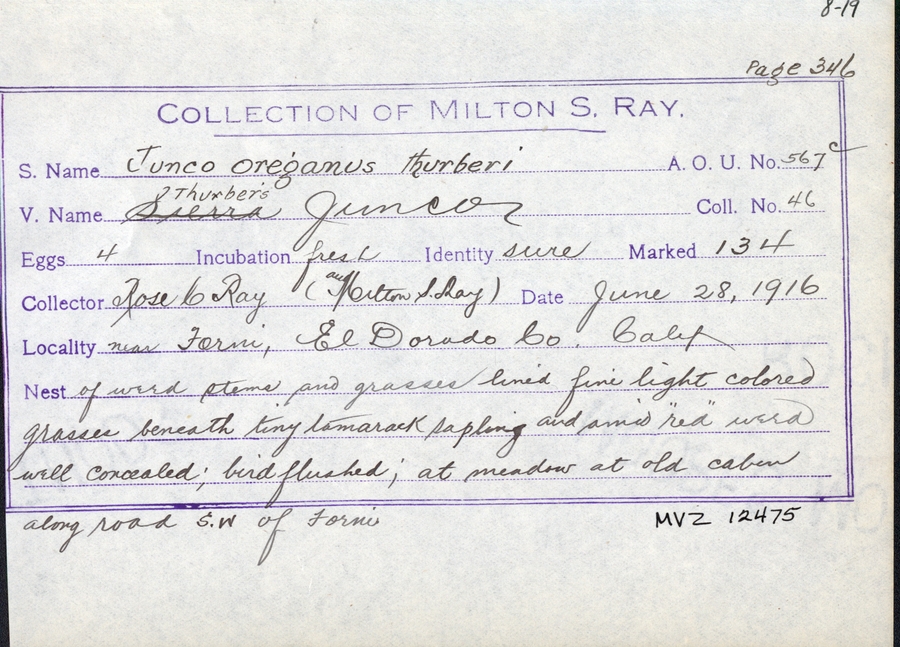 8-19
Page 346
COLLECTION OF MILTON S. RAY.
S. Name Junco oreganus thurberi A. O. U. No. 567c
Thurber's
V. Name Sierra Junco Coll. No. 46
Eggs 4 Incubation fresh Identity sure Marked 134
Collector Rose C Ray (and Milton S. Ray) Date June 28, 1916
Locality near Forni, El Dorado Co. Calif
Nest of weed stems and grasses lined fine light colored
grasses beneath tiny tamarack sapling and amid "red" weed
well concealed; bird flushed; at meadow at old cabin
along road S.W of Forni
MVZ 12475